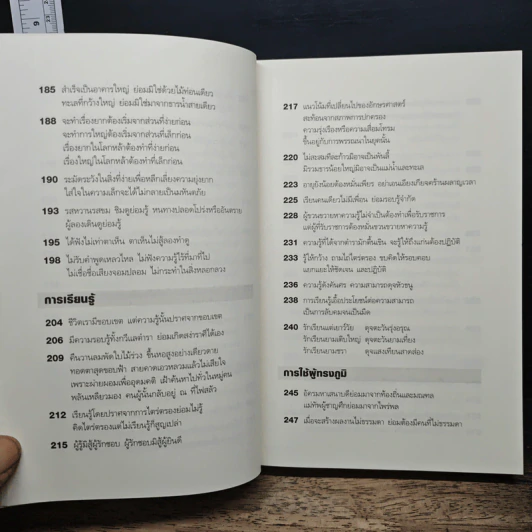 185 สำเร็จเป็นอาคารใหญ่ ย่อมมิใช่ด้วยไม้ท่อนเดียว
ทะเลที่กว้างใหญ่ ย่อมมิใช่มาจากธารน้ำสายเดียว
188 จะทำเรื่องยากต้องเริ่มจากส่วนที่ง่ายก่อน
จะทำการใหญ่ต้องเริ่มจากส่วนที่เล็กก่อน
เรื่องยากในโลกหล้าต้องทำที่ง่ายก่อน
เรื่องใหญ่ในโลกหล้าต้องทำที่เล็กก่อน
190 ระมัดระวังในสิ่งที่ง่ายเพื่อหลีกเลี่ยงความยุ่งยาก
ใส่ใจในความเล็กจะได้ไม่กลายเป็นมหันตภัย
193 รสหวานรสขม ชิมดูย่อมรู้ หนทางปลอดโปร่งหรืออันตราย
ผู้ลองเดินดูย่อมรู้
195 ได้ฟังไม่เท่าตาเห็น ตาเห็นไม่สู้ลองทำดู
198 ไม่รับคำพูดเหลวไหล ไม่ฟังความรู้ไร้ที่มาที่ไป
ไม่เชื่อชื่อเสียงจอมปลอม ไม่กระทำในสิ่งหลอกลวง
การเรียนรู้
204 ชีวิตเรามีขอบเขต แต่ความรู้นั้นปราศจากขอบเขต
206 มีความรอบรู้ทั้งกวีแลตำรา ย่อมเกิดสง่าราศีได้เอง
209 คืนวานลมพัดใบไม้ร่วง ขึ้นหอสูงอย่างเดียวดาย
ทอดตาสุดขอบฟ้า สายคาดเอวหลวมแล้วไม่เสียใจ
เพราะผ่ายผอมเพื่ออุดมคติ เฝ้าค้นหาไปทั่วในหมู่คน
พลันเหลียวมอง คนผู้นั้นกลับอยู่ ณ ที่ไฟสลัว
212 เรียนรู้โดยปราศจากการไตร่ตรองย่อมไม่รู้
คิดไตร่ตรองแต่ไม่เรียนรู้ก็สูญเปล่า
215 ผู้รู้มิสู้ผู้รักชอบ ผู้รักชอบมิสู้ผู้ยินดี
217 แนวโน้มที่เปลี่ยนไปของอักษรศาสตร์
สะท้อนจากสภาพการปกครอง
ความรุ่งเรืองหรือความเสื่อมโทรม
ขึ้นอยู่กับการพรรณนาในยุคนั้น
220 ไม่สะสมทีละก้าวมิอาจเป็นพันลี้
มิรวมธารน้อยใหญ่มิอาจเป็นแม่น้ำและทะเล
223 อายุยังน้อยต้องหมั่นเพียร อย่าเอนเอียงเกียจคร้านผลาญเวลา
225 เรียนคนเดียวไม่มีเพื่อน ย่อมรอบรู้จำกัด
228 ผู้ขวนขวายหาความรู้ไม่จำเป็นต้องทำเพื่อรับราชการ
แต่ผู้ที่รับราชการต้องหมั่นขวนขวายหาความรู้
231 ความรู้ที่ได้จากตำรามักตื้นเขิน จะรู้ให้ถึงแก่นต้องปฏิบัติ
233 รู้ให้กว้าง ถามไถ่ไตร่ตรอง ขบคิดให้รอบคอบ
แยกแยะให้ชัดเจน และปฏิบัติ
236 ความรู้ดังคันศร ความสามารถดุจหัวธนู
238 การเรียนรู้เอื้อประโยชน์ต่อความสามารถ
เป็นการลับคมจนเป็นมีด
240 รักเรียนแต่เยาว์วัย ดุจตะวันรุ่งอรุณ
รักเรียนยามเติบใหญ่ ดุจตะวันยามเที่ยง
รักเรียนยามชรา ดุจแสงเทียนสาดส่อง
การใช้ผู้ทรงภูมิ
245 อัครมหาเสนาบดีย่อมมาจากท้องถิ่นและมณฑล
แม่ทัพผู้ชาญศึกย่อมมาจากไพร่พล
247 เมื่อจะสร้างผลงานไม่ธรรมดา ย่อมต้องมีคนที่ไม่ธรรมดา